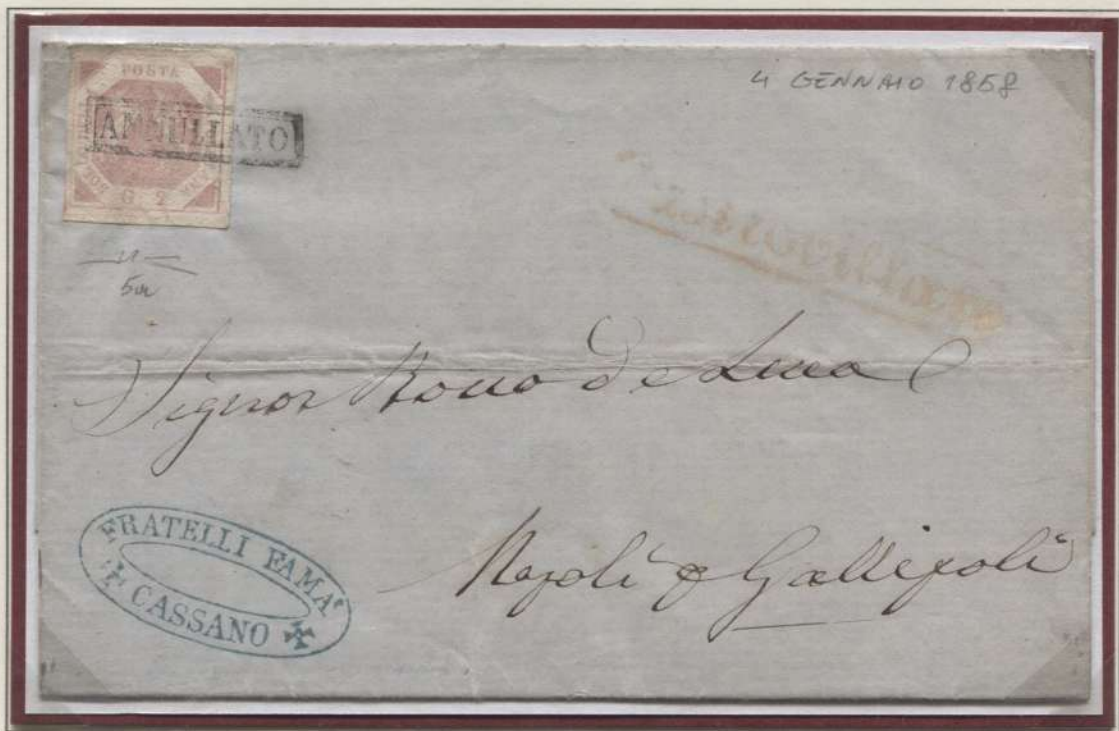 POSTA
ANNULLATO
G 2
4 GENNAIO 1858
Signor Rocco de Luca
Napoli p Gallipoli
FRATELLI FAMA'
CASSANO